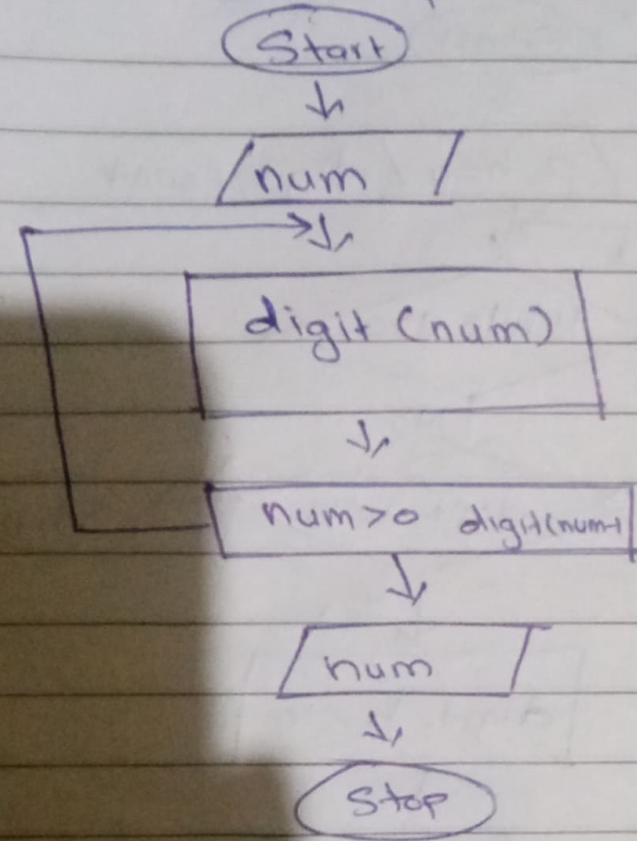 Start
num
digit (num)
num>0 digit(num-1
num
Stop